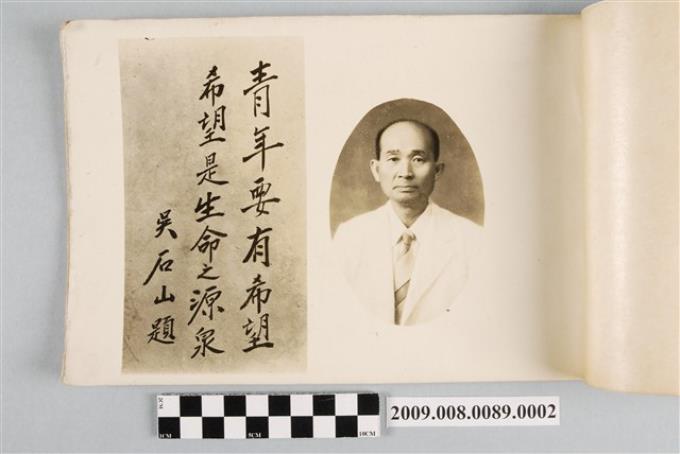 青年要有希望
希望是生命之源泉
吳石山題
2009.008.0089.0002
1CM
5CM
10CM